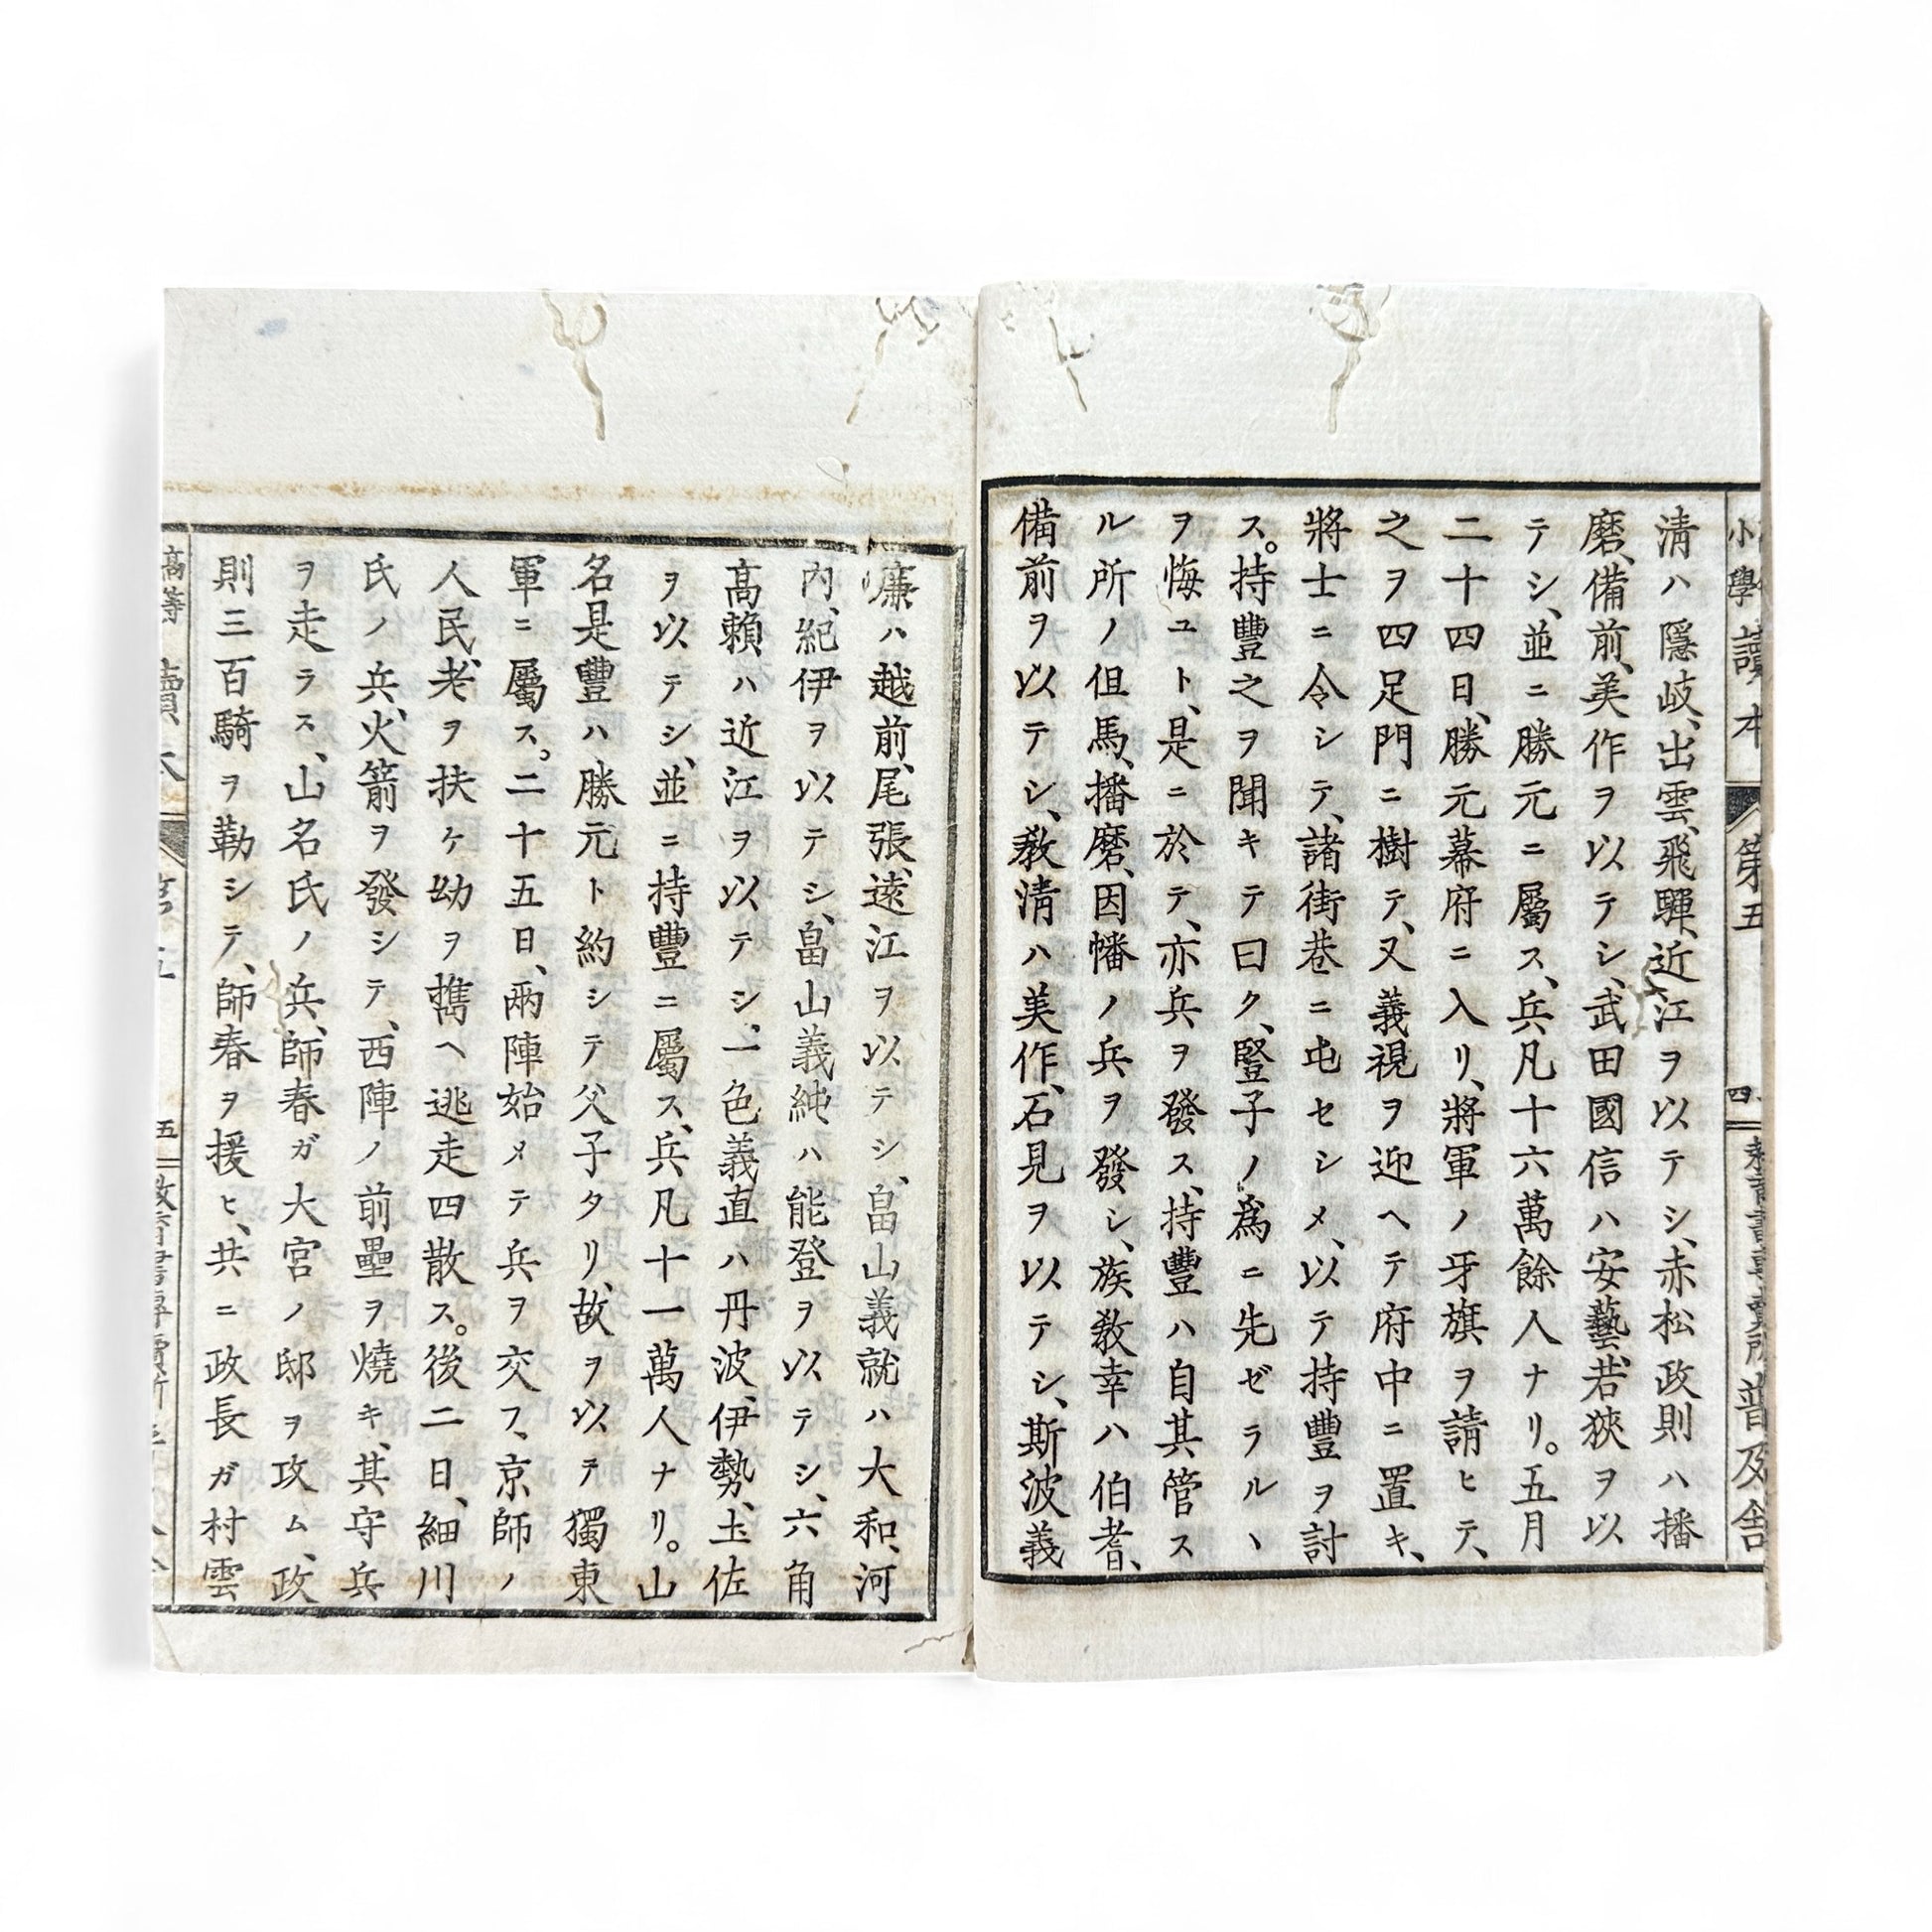 小學讀本 第五 四 普及舍
淸ハ隱岐、出雲、飛驒、近江ヲ以テシ、赤松政則ハ播
磨、備前、美作ヲ以テシ、武田國信ハ安藝、若狹ヲ以
テシ、並ニ勝元ニ屬ス、兵凡十六萬餘人ナリ。五月
二十四日、勝元幕府ニ入リ、將軍ノ牙旗ヲ請ヒテ、
之ヲ四足門ニ樹テ、又義視ヲ迎ヘテ府中ニ置キ、
將士ニ令シテ、諸街巷ニ屯セシメ、以テ持豐ヲ討
ス。持豐之ヲ聞キテ曰ク、豎子ノ爲ニ先ゼラルヽ
ヲ悔ユト、是ニ於テ、亦兵ヲ發ス、持豐ハ自其管ス
ル所ノ但馬、播磨、因幡ノ兵ヲ發シ、族敎幸ハ伯耆、
備前ヲ以テシ、敎淸ハ美作、石見ヲ以テシ、斯波義
廉ハ越前、尾張、遠江ヲ以テシ、畠山義就ハ大和、河
內、紀伊ヲ以テシ、畠山義純ハ能登ヲ以テシ、六角
高賴ハ近江ヲ以テシ、一色義直ハ丹波、伊勢、土佐
ヲ以テシ、並ニ持豐ニ屬ス、兵凡十一萬人ナリ。山
名是豐ハ勝元ト約シテ父子タリ、故ヲ以テ獨東
軍ニ屬ス。二十五日、兩陣始メテ兵ヲ交フ、京師ノ
人民、老ヲ扶ケ幼ヲ携ヘ逃走四散ス。後二日、細川
氏ノ兵、火箭ヲ發シテ、西陣ノ前壘ヲ燒キ、其守兵
ヲ走ラス、山名氏ノ兵、師春ガ大宮ノ邸ヲ攻ム、政
則三百騎ヲ勒シテ、師春ヲ援ヒ、共ニ政長ガ村雲
高等 讀本 五